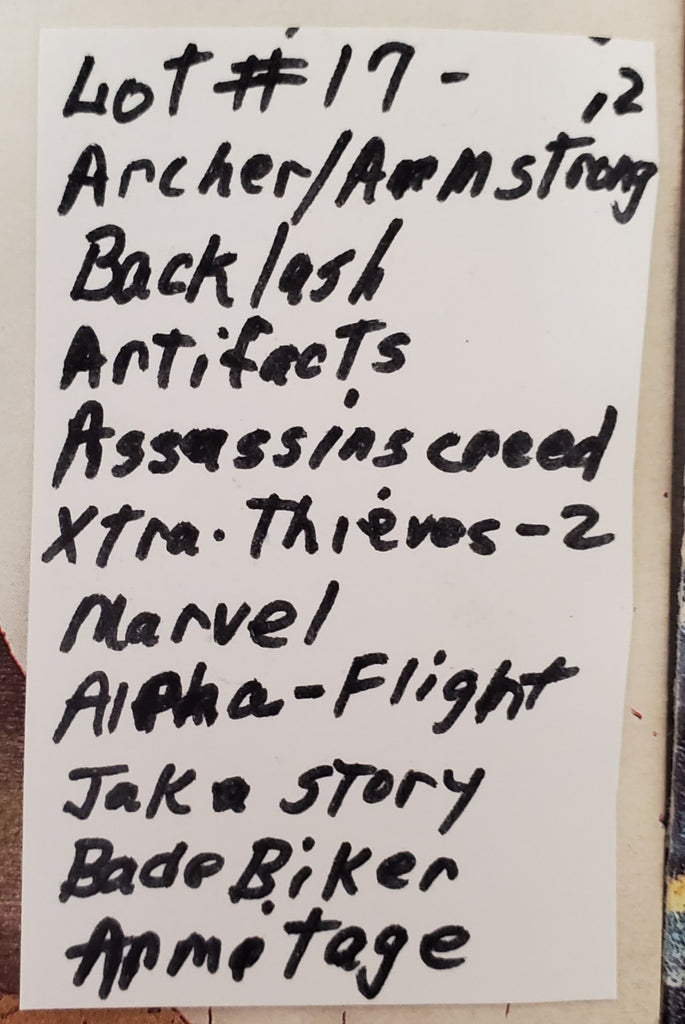 Lot #17 - ,2
Archer/Armstrong
Backlash
Artifacts
Assassins creed
Xtra. Thieves-2
Marvel
Alpha-Flight
Jaka story
Bade Biker
Armitage